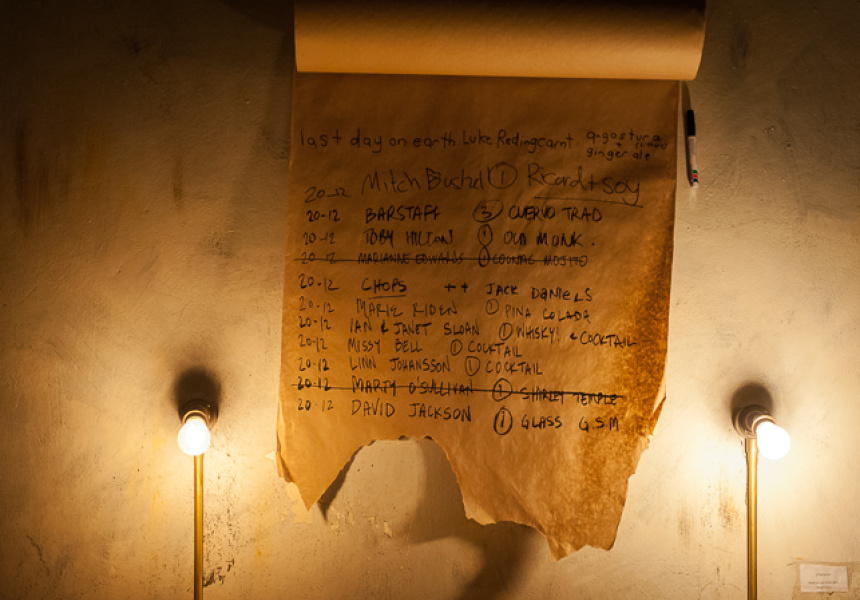 last day on earth Luke Redingcamt agostura
ginger ale
20-12 Mitch Bushel ① Ricard + soy
20-12 BARSTAFF ③ CUERVO TRAD
20-12 TOBY HILTON ① OLD MONK.
20-12 MARIANNE EDWARDS ① COGNAC MOJITO
20-12 CHOPS ++ JACK DANIELS
20-12 MARIE RIDEN ① PINA COLADA
20-12 IAN & JANET SLOAN ① WHISKY! & COCKTAIL
20-12 MISSY BELL ① COCKTAIL
20-12 LINN JOHANSSON ① COCKTAIL
20-12 MARTY O'SULLIVAN ① SHIRLEY TEMPLE
20-12 DAVID JACKSON ① GLASS G.S.M